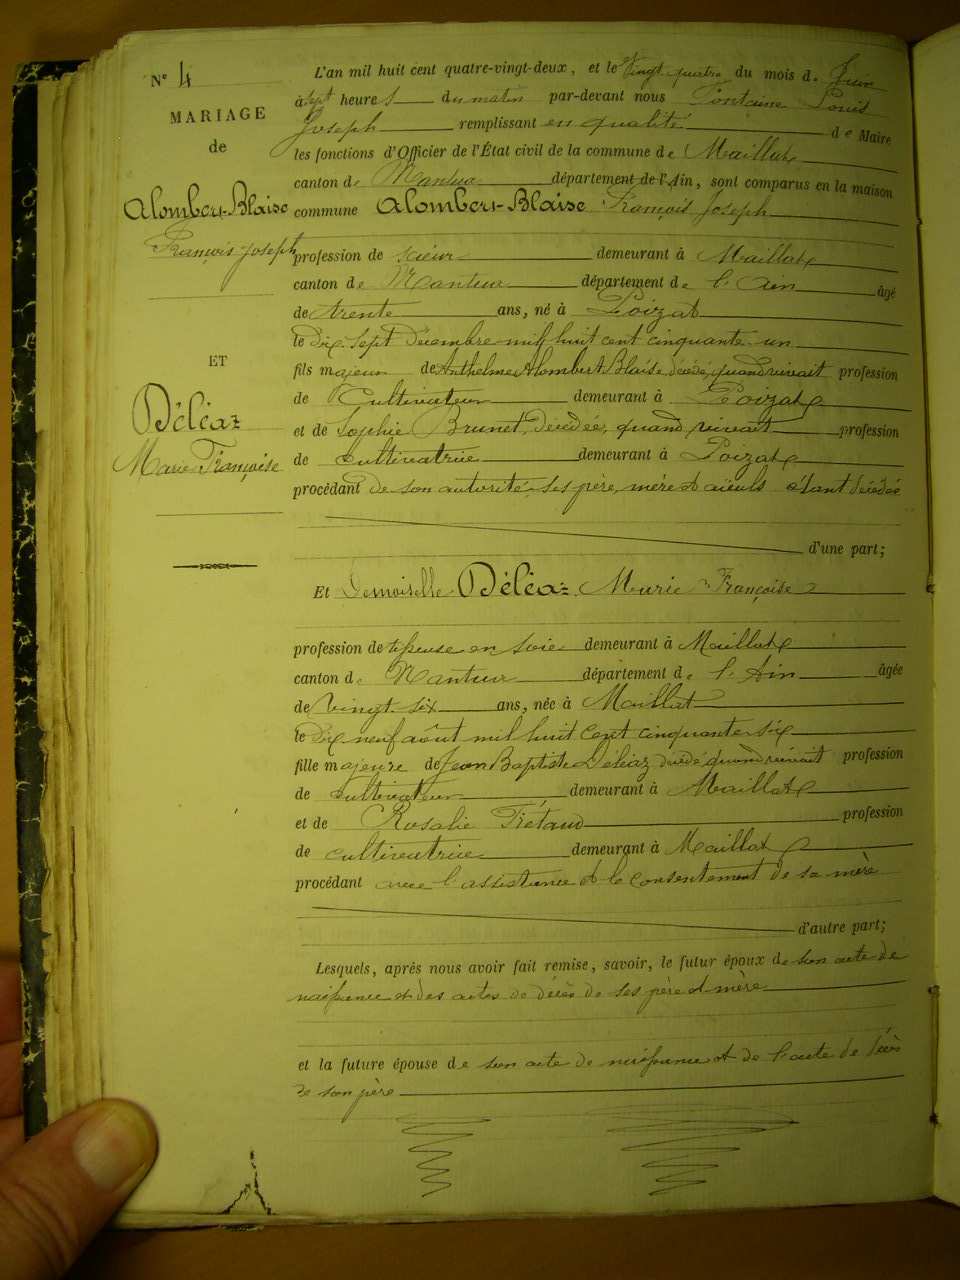 N° 4
MARIAGE
de
Alombert-Blaise
François Joseph
ET
Déléaz
Marie Françoise
L'an mil huit cent quatre-vingt-deux, et le vingt quatre du mois de Juin
à sept heures du matin par-devant nous Fontaine Louis
Joseph remplissant en qualité de Maire
les fonctions d'Officier de l'État civil de la commune de Maillat
canton de Nantua département de l'Ain, sont comparus en la maison
commune Alombert-Blaise François Joseph
profession de scieur demeurant à Maillat
canton de Nantua département de l'Ain âgé
de trente ans, né à Poizat
le dix sept décembre mil huit cent cinquante un
fils majeur de Anthelme Alombert Blaise, décédé, quand vivait profession
de Cultivateur demeurant à Poizat
et de Sophie Brunet, décédée, quand vivait profession
de cultivatrice demeurant à Poizat
procédant de son autorité, ses père, mère et aïeuls étant décédés
d'une part;
Et Demoiselle Déléaz Marie Françoise
profession de tisseuse en soie demeurant à Maillat
canton de Nantua département de l'Ain âgée
de vingt six ans, née à Maillat
le dix neuf août mil huit cent cinquante six
fille majeure de Jean Baptiste Déléaz décédé, quand vivait profession
de cultivateur demeurant à Maillat
et de Rosalie Trétaud profession
de cultivatrice demeurant à Maillat
procédant avec l'assistance et le consentement de sa mère
d'autre part;
Lesquels, après nous avoir fait remise, savoir, le futur époux de son acte de
naissance et des actes de décès de ses père et mère
et la future épouse de son acte de naissance et de l'acte de décès
de son père